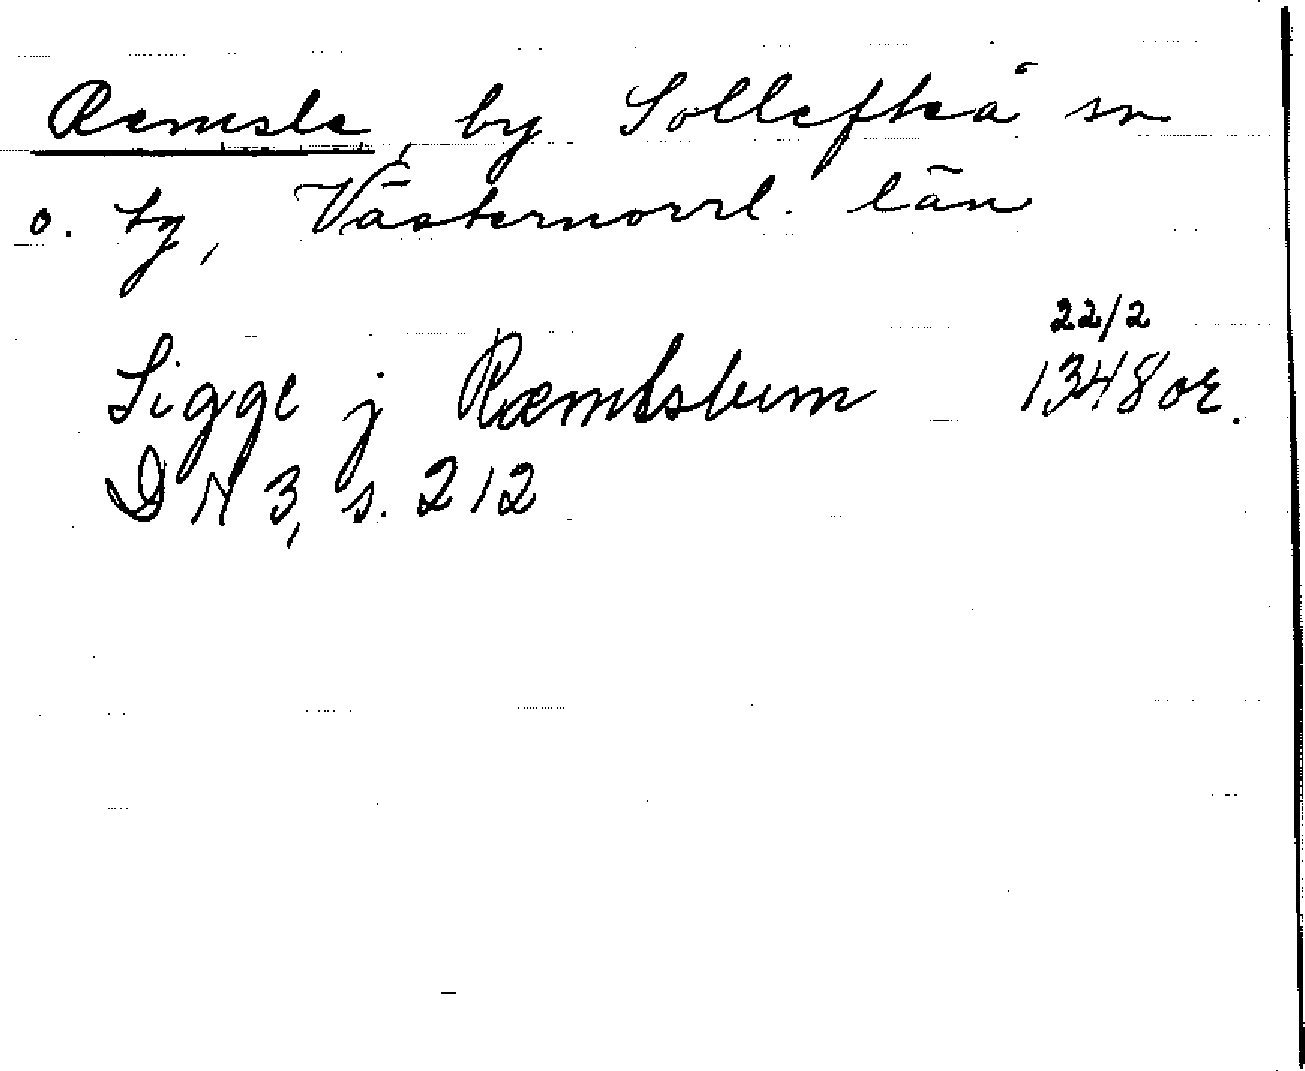 Remsle, by Sollefteå sn
o. tg, Västernorrl. län
22/2
Sigge j Ræmslum 1348 or.
DN 3, s. 212